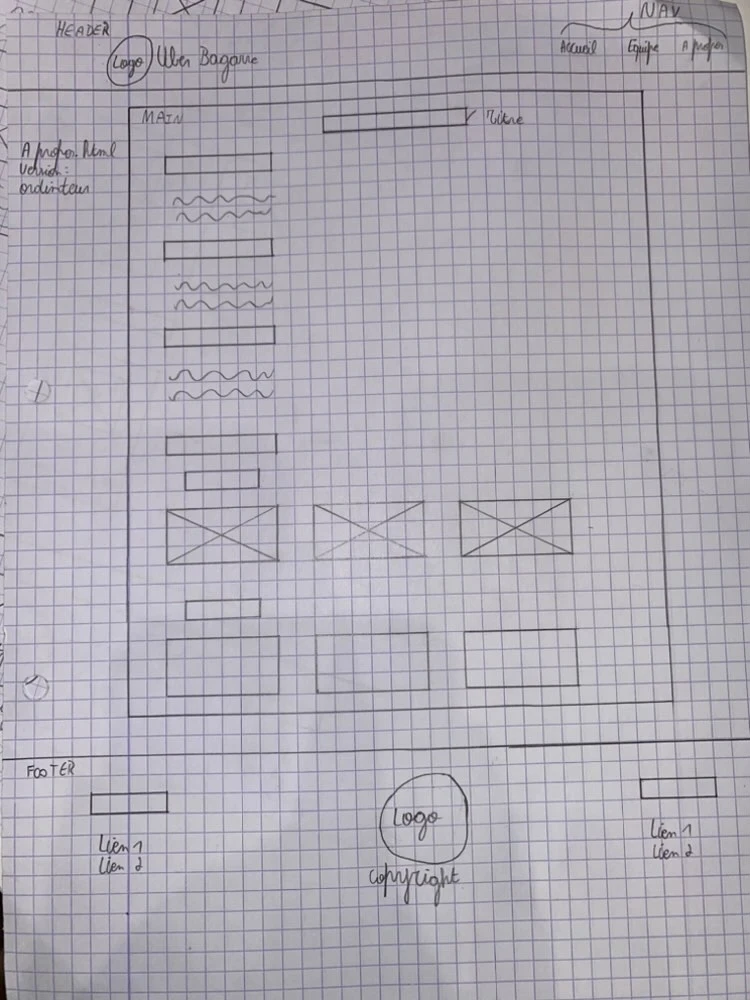 HEADER
NAV
Logo Uber Bagarre
Accueil Equipe A propos
MAIN
Titre
A propos.html
version :
ordinateur
FOOTER
Logo
Lien 1
Lien 2
copyright
Lien 1
Lien 2